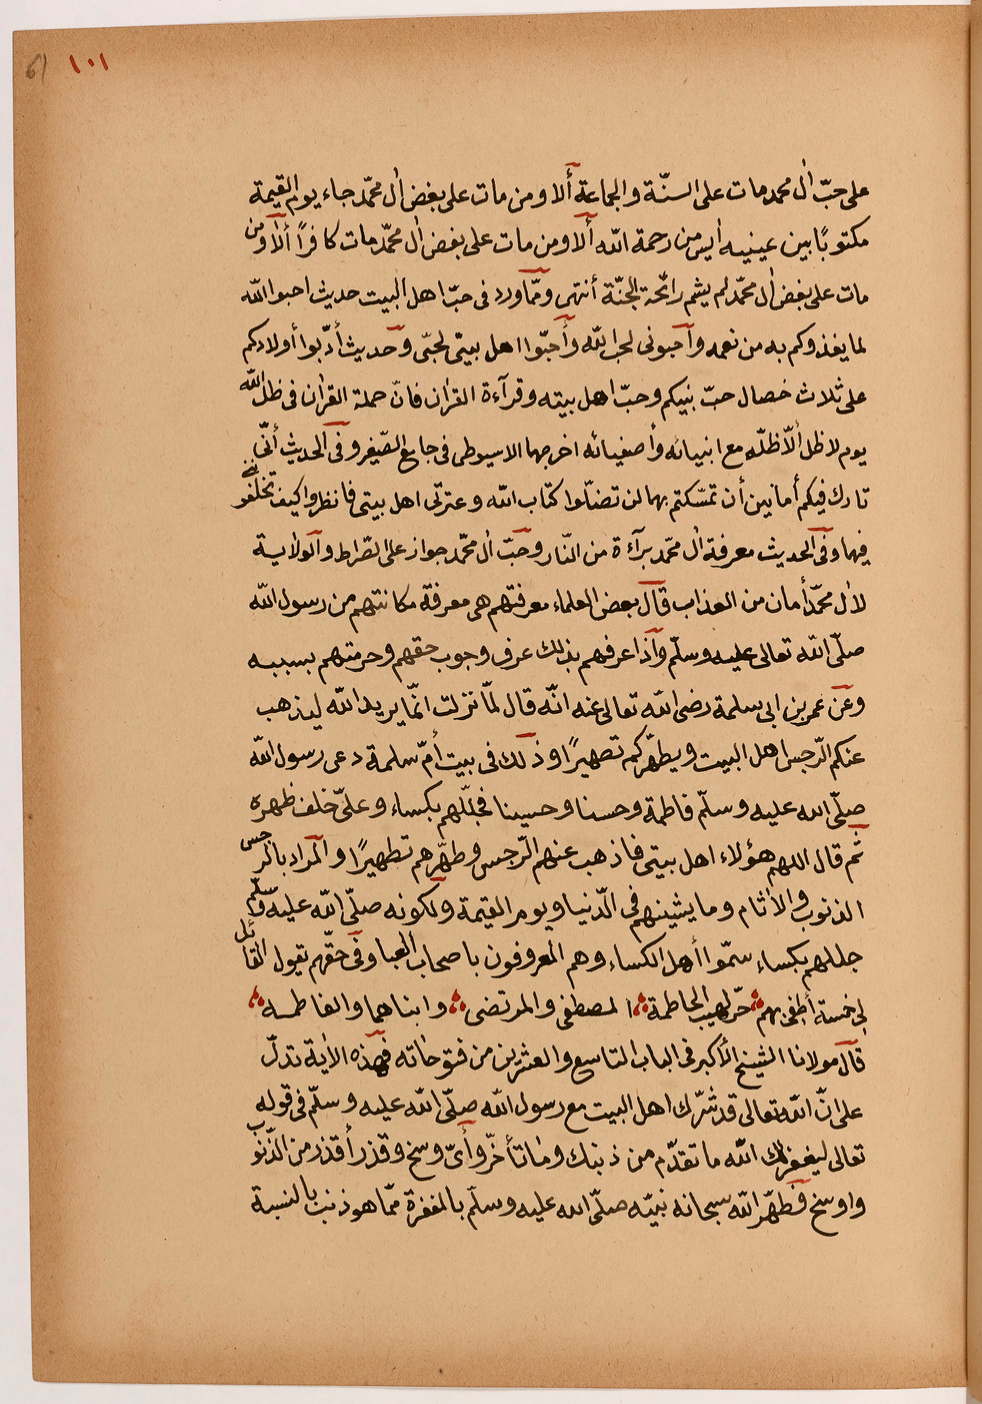 ١٠١
61
على حبّ أل محمد مات على السنّة والجماعة ألا ومن مات على بغض أل محمّد جاء يوم القيمة
مكتوبًا بين عينيه أيس من رحمة الله ألا ومن مات على بغض أل محمّد مات كافرًا ألا ومن
مات على بغض أل محمّد لم يشم رائحة الجنّة أنتهى وممّا ورد فى حبّ اهل البيت حديث احبوا الله
لما يغذوكم به من نعمه وأحبونى لحب الله وأحبّوا اهل بيتى لحبّى وحديث أدّبوا أولادكم
على ثلاث خصال حبّ نبيكم وحبّ اهل بيته وقرآءة القرأن فانّ حملة القرأن فى ظل الله
يوم لا ظل ألاّ ظلّه مع انبيائه وأصفيائه اخرجهما الاسيوطى فى جامع الصّغير وفى الحديث أنّى
تارك فيكم أما نين أن تمسّكتم بهما لن تضلّوا كتاب الله وعترتى اهل بيتى فانظروا كيف تخلّفونى
فيهما وفى الحديث معرفة أل محمّد برآءة من النّار وحبّ أل محمّد جواز على الصّراط والولاية
لأل محمّد أمان من العذاب قال بعض العلماء معرفتهم هى معرفة مكانتهم من رسول الله
صلّى الله تعالى عليه وسلّم وأذا عرفهم بذلك عرف وجوب حقهم وحرمتهم بسببه
وعن عمر بن ابى سلمة رضى الله تعالى عنه انّه قال لمّا نزلت انّما يريد الله ليذهب
عنكم الرّجس اهل البيت ويطهّركم تطهيرًا وذلك فى بيت أمّ سلمة دعى رسول الله
صلّى الله عليه وسلّم فاطمة وحسنا وحسينا فجلّلهم بكساء وعلىّ خلف ظهره
ثم قال اللهم هؤلاء اهل بيتى فاذهب عنهم الرّجس وطهّرهم تطهيرًا والمراد بالرجس
الذنوب والأثام وما يشينهم فى الدّنيا ويوم القيمة ولكونه صلّى الله عليه وسلّم
جللهم بكساء سمّوا أهل الكساء وهم المعروفون باصحاب العبا وفى حقّهم يقول القائل
لى خمسة أطفى بهم حرّ لهيب الحاطمة المصطفى والمرتضى وابناهما والفاطمه
قال مولانا الشيخ الأكبر فى الباب التاسع والعشرين من فتوحاته فهذه الأية تدلّ
على انّ الله تعالى قد شرّك اهل البيت مع رسول الله صلّى الله عليه وسلّم فى قوله
تعالى ليغفر لك الله ما تقدّم من ذنبك وما تأخّر وأىّ وسخ وقذر أقذر من الذّنوب
واوسخ فطهّر الله سبحانه نبيّه صلّى الله عليه وسلّم بالمغفرة ممّا هو ذنب بالنسبة